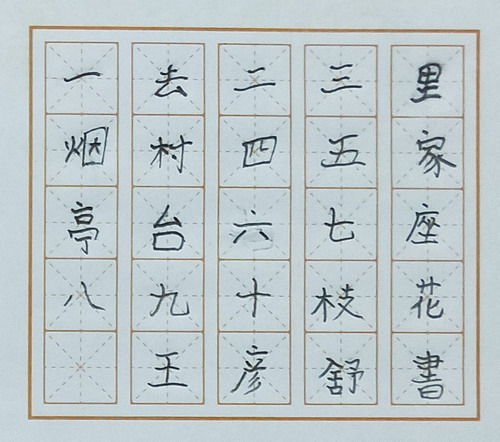 一去二三里
烟村四五家
亭台六七座
八九十枝花
王彦舒書